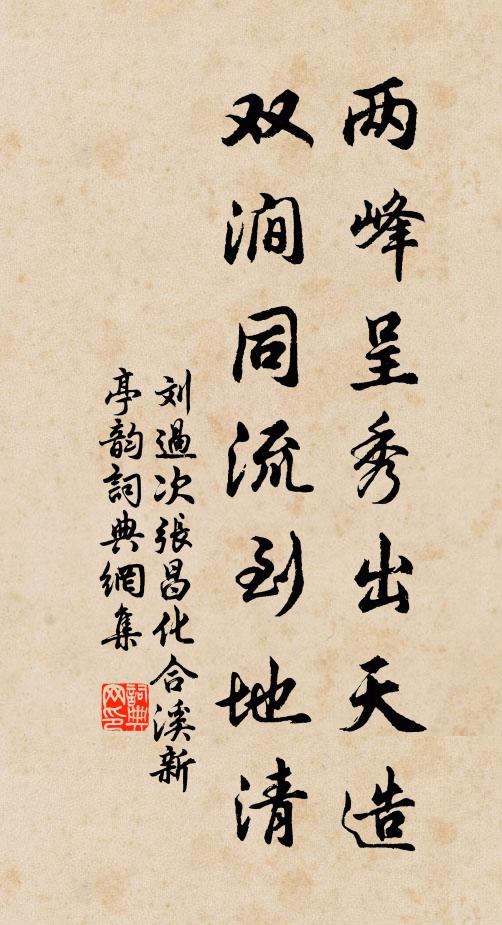 两峰呈秀出天造
双涧同流到地清
刘過次張昌化合溪新
亭韵詞典網集
詞典
网印